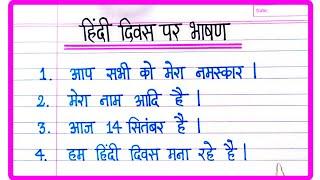 Date:
हिंदी दिवस पर भाषण
1. आप सभी को मेरा नमस्कार ।
2. मेरा नाम आदि है ।
3. आज 14 सितंबर है ।
4. हम हिंदी दिवस मना रहे है ।